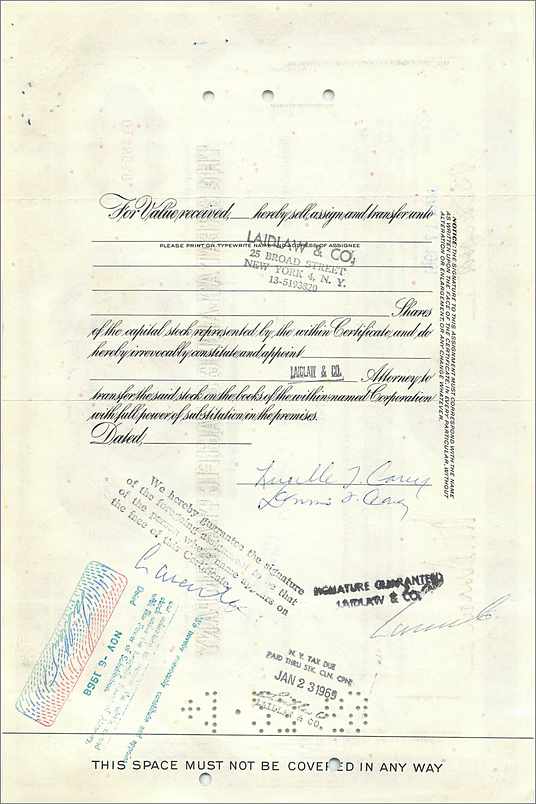 For Value received, ___ hereby sell, assign, and transfer unto
PLEASE PRINT OR TYPEWRITE NAME AND ADDRESS OF ASSIGNEE
LAIDLAW & CO.
25 BROAD STREET
NEW YORK 4, N. Y.
13-5193820
Shares
of the capital stock represented by the within Certificate, and do
hereby irrevocably constitute and appoint
LAIDLAW & CO.
Attorney to
transfer the said stock on the books of the within-named Corporation
with full power of substitution in the premises.
Dated,
NOTICE: THE SIGNATURE TO THIS ASSIGNMENT MUST CORRESPOND WITH THE NAME
AS WRITTEN UPON THE FACE OF THE CERTIFICATE, IN EVERY PARTICULAR, WITHOUT
ALTERATION OR ENLARGEMENT, OR ANY CHANGE WHATEVER.
Lucille T. Carey
Dennis J. Carey
We hereby guarantee the signature
of the foregoing assignment to be that
of the party whose name appears on
the face of this Certificate
SIGNATURE GUARANTEED
LAIDLAW & CO.
hereby irrevocably constitute and appoint
Dated
NOV -6 1968
N. Y. TAX DUE
PAID THRU STK. CLR. CPN.
JAN 23 1969
LAIDLAW & CO.
THIS SPACE MUST NOT BE COVERED IN ANY WAY